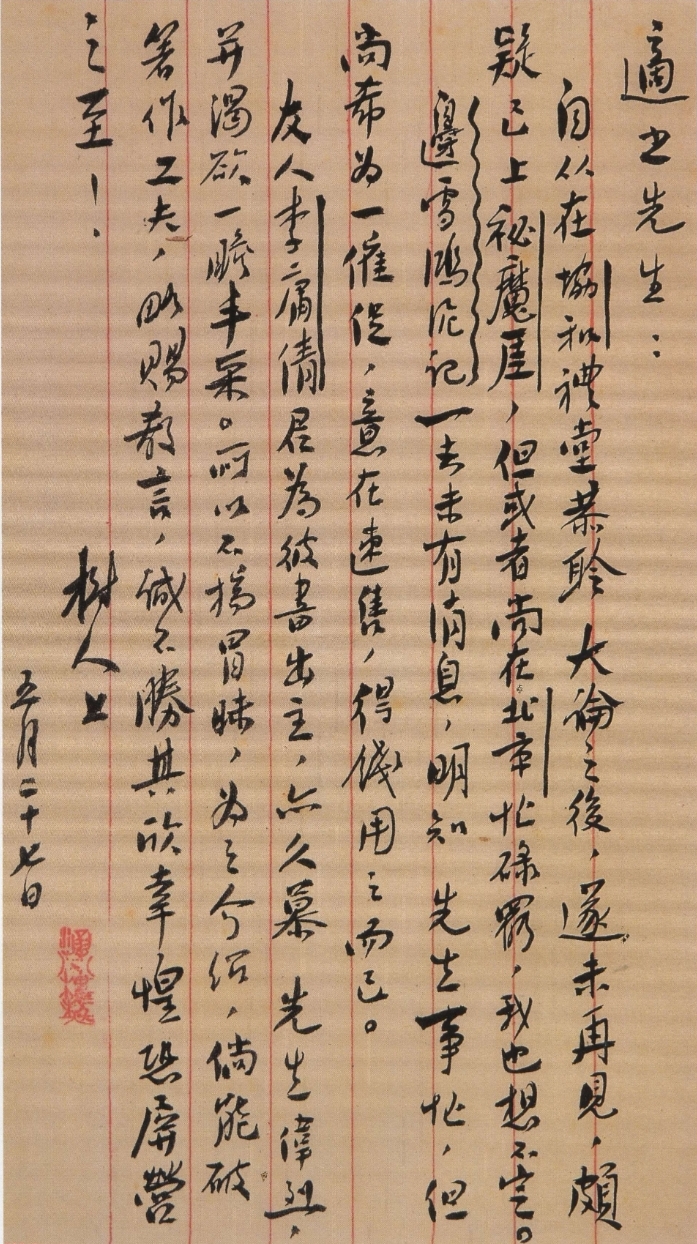 適之先生：
自从在協和禮堂恭聆　大論之後，遂未再見，頗
疑已上祕魔厓，但或者尚在北京忙碌罷，我也想不定。
邊雪鴻泥記一去未有消息，明知　先生事忙，但
尚希為一催促，意在速售，得錢用之而已。
友人李庸倩君為彼書出主，亦久慕　先生偉烈，
并渴欲一瞻丰采。所以不揣冒昧，為之介紹，倘能破
著作工夫，略賜教言，誠不勝其欣幸惶恐屏營
之至！
樹人上
五月二十七日